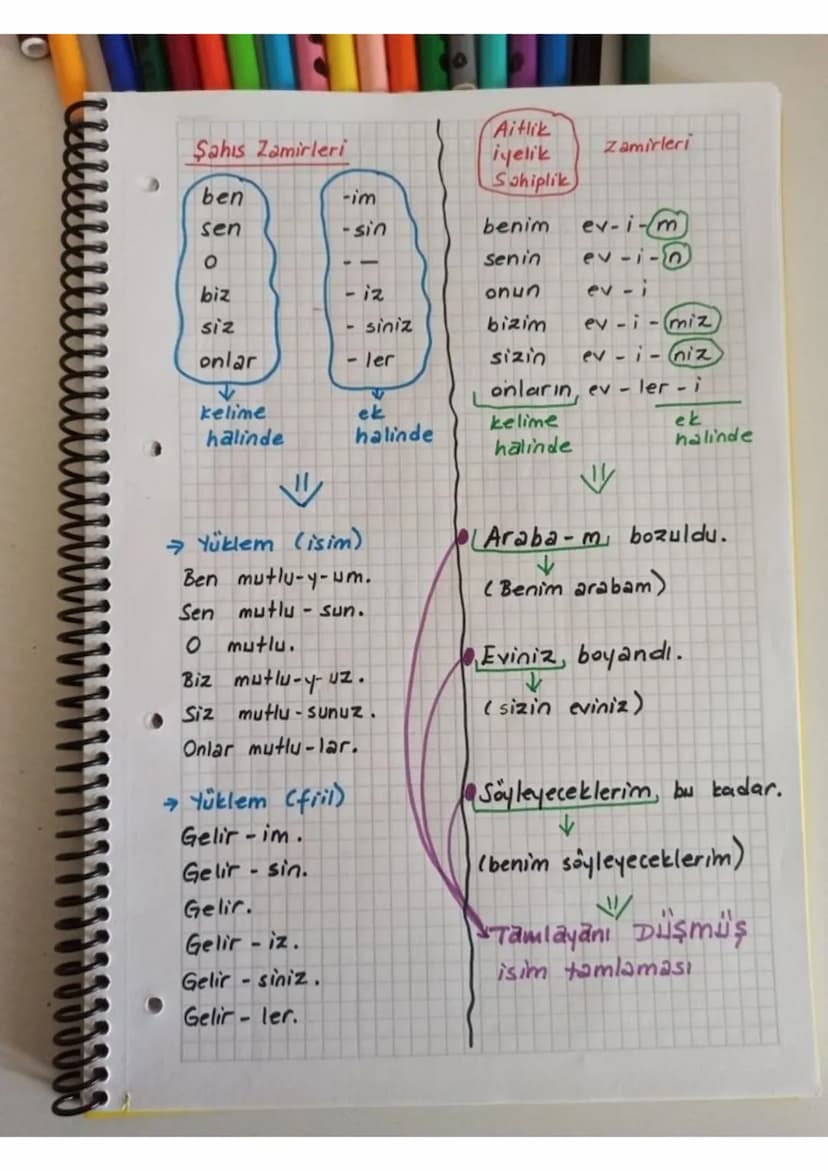 Şahıs Zamirleri
ben -im
sen - sin
o - —
biz - iz
siz - siniz
onlar - ler
kelime halinde
ek halinde
→ Yüklem (isim)
Ben mutlu-y-um.
Sen mutlu - sun.
O mutlu.
Biz mutlu-y-uz.
Siz mutlu-sunuz.
Onlar mutlu-lar.
→ Yüklem (fiil)
Gelir - im.
Gelir - sin.
Gelir.
Gelir - iz.
Gelir - siniz.
Gelir - ler.
Aitlik
iyelik zamirleri
Sahiplik
benim ev - i - m
senin ev - i - n
onun ev - i
bizim ev - i - miz
sizin ev - i - niz
onların ev - ler - i
kelime halinde
ek halinde
Araba - m bozuldu.
(Benim arabam)
Eviniz boyandı.
(sizin eviniz)
Söyleyeceklerim bu kadar.
(benim söyleyeceklerim)
Tamlayanı DÜŞMÜŞ
isim tamlaması